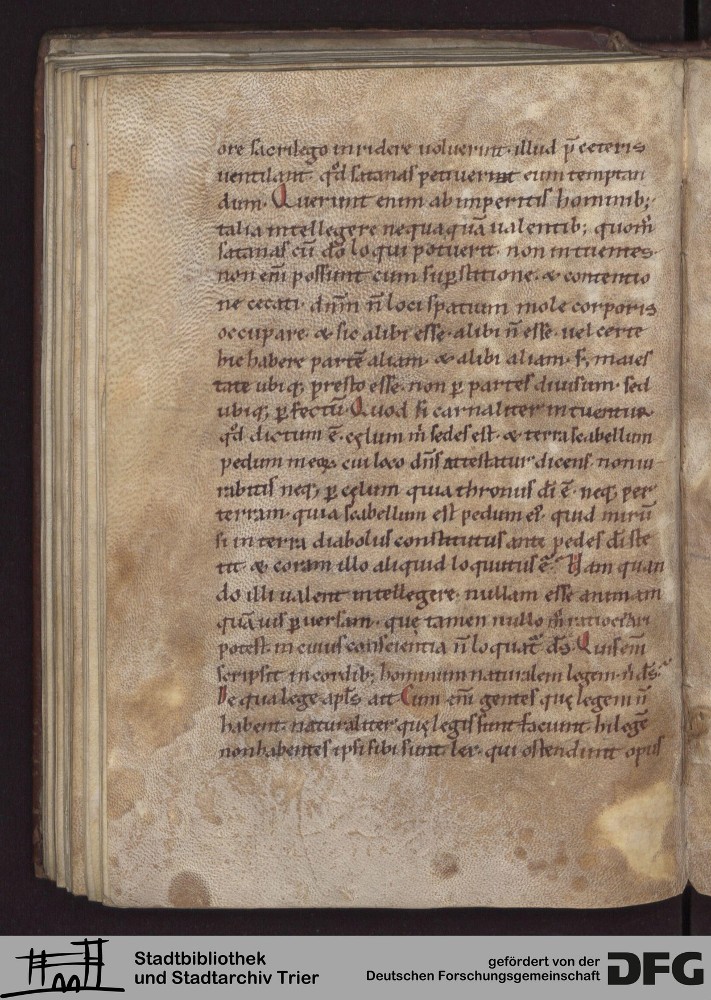 ore sacrilego inridere voluerint· illud p̄ ceteris
uentilant· qđ satanas petiuerint eum temptan
dum· Querunt enim ab imperitis hominib;
talia intellegere nequaquā ualentib; quom̄
satanas cū do͞ loqui potuerit· non intuentes·
non em̄ possunt cum suꝑstitione· & contentio
ne cecati· dnm̄ n̄ loci spatium mole corporis
occupare· & sic alibi esse· alibi n̄ esse· uel certe
hic habere partē aliam· & alibi aliam· s; maies
tate ubiq; presto esse· non ꝑ partes diuisum· sed
ubiq; ꝑfectū· Quod si carnaliter intuentur
qđ dictum ē· cęlum m̄ sedes est· & terra scabellum
pedum meoꝝ· cui loco dn̄s attestatur dicens· non iu
rabitis neq; ꝑ cęlum quia thronus dī ē· neq; per
terram· quia scabellum est pedum ei᷒· quid mirū
si in terra diabolus constitutus ante pedes dī ste
tit & coram illo aliquid loquutus ē· Nam quan
do illi ualent intellegere· nullam esse animam
quāuis ꝑuersam· quę tamen nullo m̄ ratiocinari
potest· in cuius conscientia n̄ loquat᷑ ds̄· Quis em̄
scripsit in cordib; hominum naturalem legem· n̄ ds̄·
De qua lege apl̄s ait Cum em̄ gentes quę legem n̄
habent· naturaliter quę legis sunt faciunt· hi legē
non habentes ipsi sibi sunt lex· qui ostendunt opus
Stadtbibliothek
und Stadtarchiv Trier
gefördert von der
Deutschen Forschungsgemeinschaft
DFG